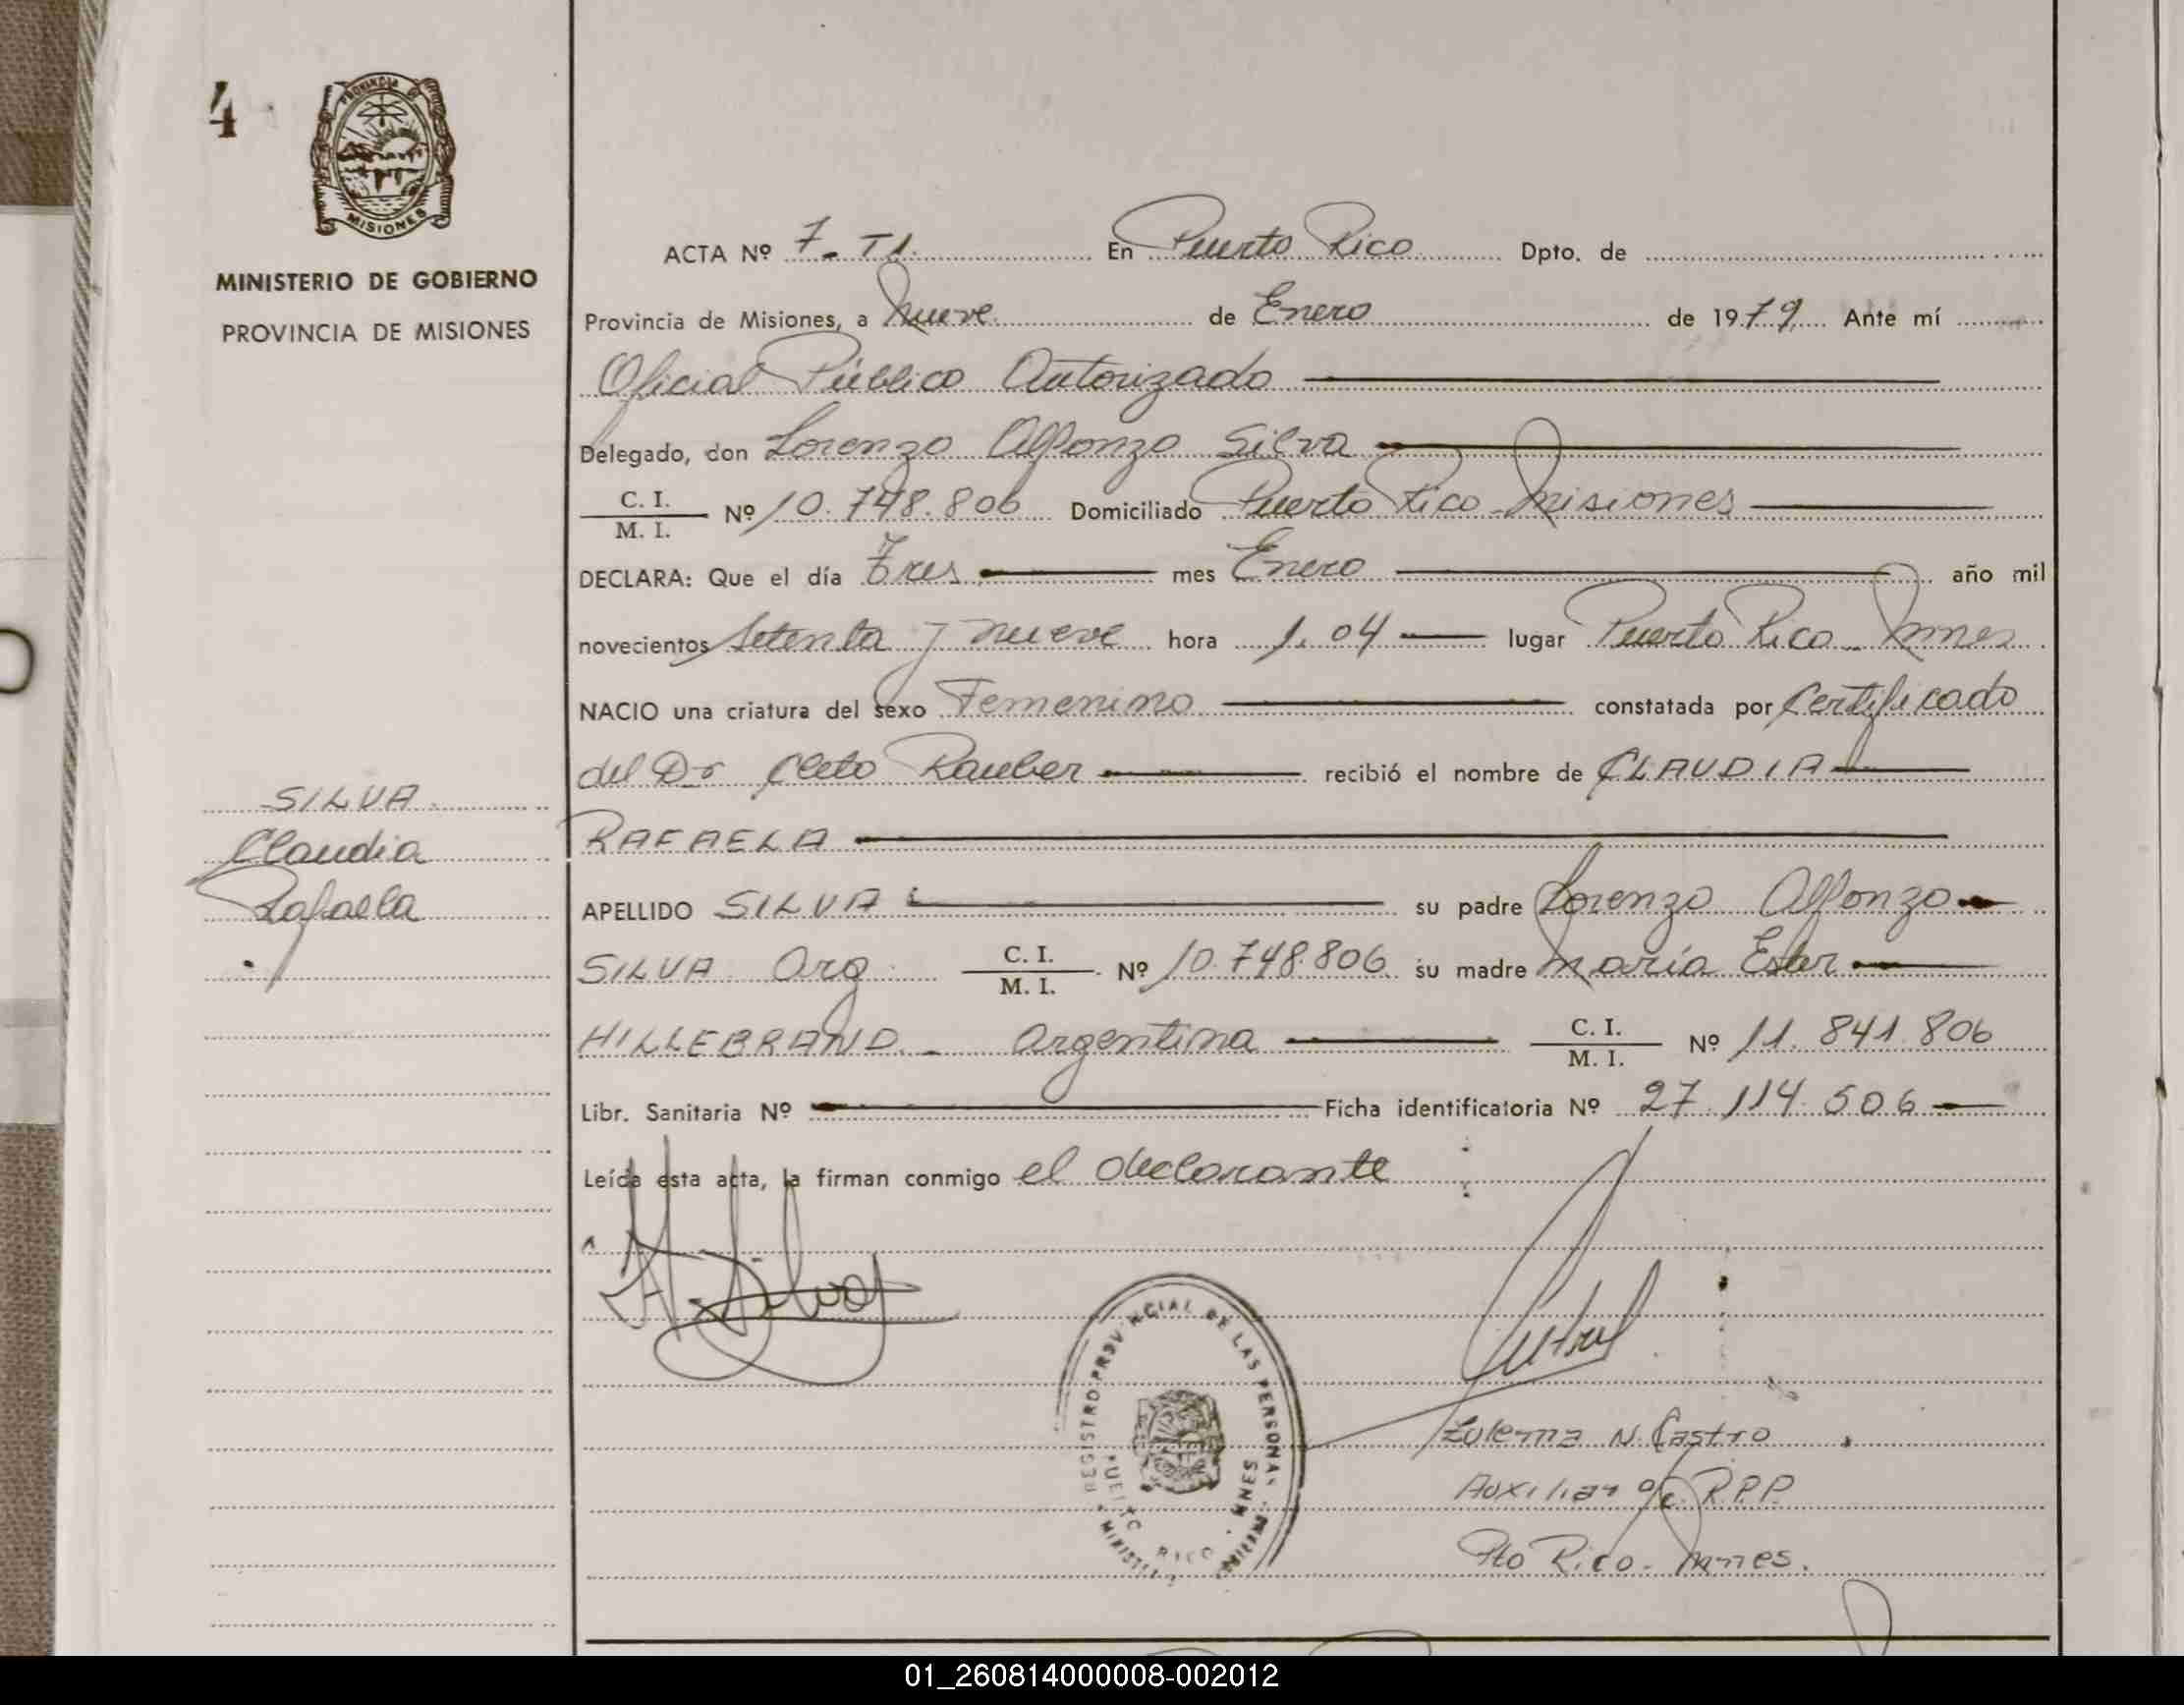 4
PROVINCIA DE
MISIONES
MINISTERIO DE GOBIERNO
PROVINCIA DE MISIONES
ACTA Nº 7 - T1. En Puerto Rico Dpto. de
Provincia de Misiones, a Nueve de Enero de 1979 Ante mí
Oficial Público Autorizado
Delegado, don Lorenzo Alfonzo Silva
C. I. / M. I. Nº 10.748.806 Domiciliado Puerto Rico - Misiones
DECLARA: Que el día Tres mes Enero año mil
novecientos Setenta y nueve hora 1.04 lugar Puerto Rico - Mnes
NACIO una criatura del sexo Femenino constatada por Certificado
del Dr Cleto Rauber recibió el nombre de CLAUDIA
RAFAELA
SILVA
Claudia
Rafaela
APELLIDO SILVA su padre Lorenzo Alfonzo
SILVA Arg C. I. / M. I. Nº 10.748.806 su madre María Ester
HILLEBRAND - Argentina C. I. / M. I. Nº 11.841.806
Libr. Sanitaria Nº Ficha identificatoria Nº 27.114.506
Leída esta acta, la firman conmigo el declarante
REGISTRO PROVINCIAL DE LAS PERSONAS
PUERTO RICO MNES
Zulema N. Castro
Auxiliar a/c R.P.P.
Pto Rico - Mnes.
01_260814000008-002012